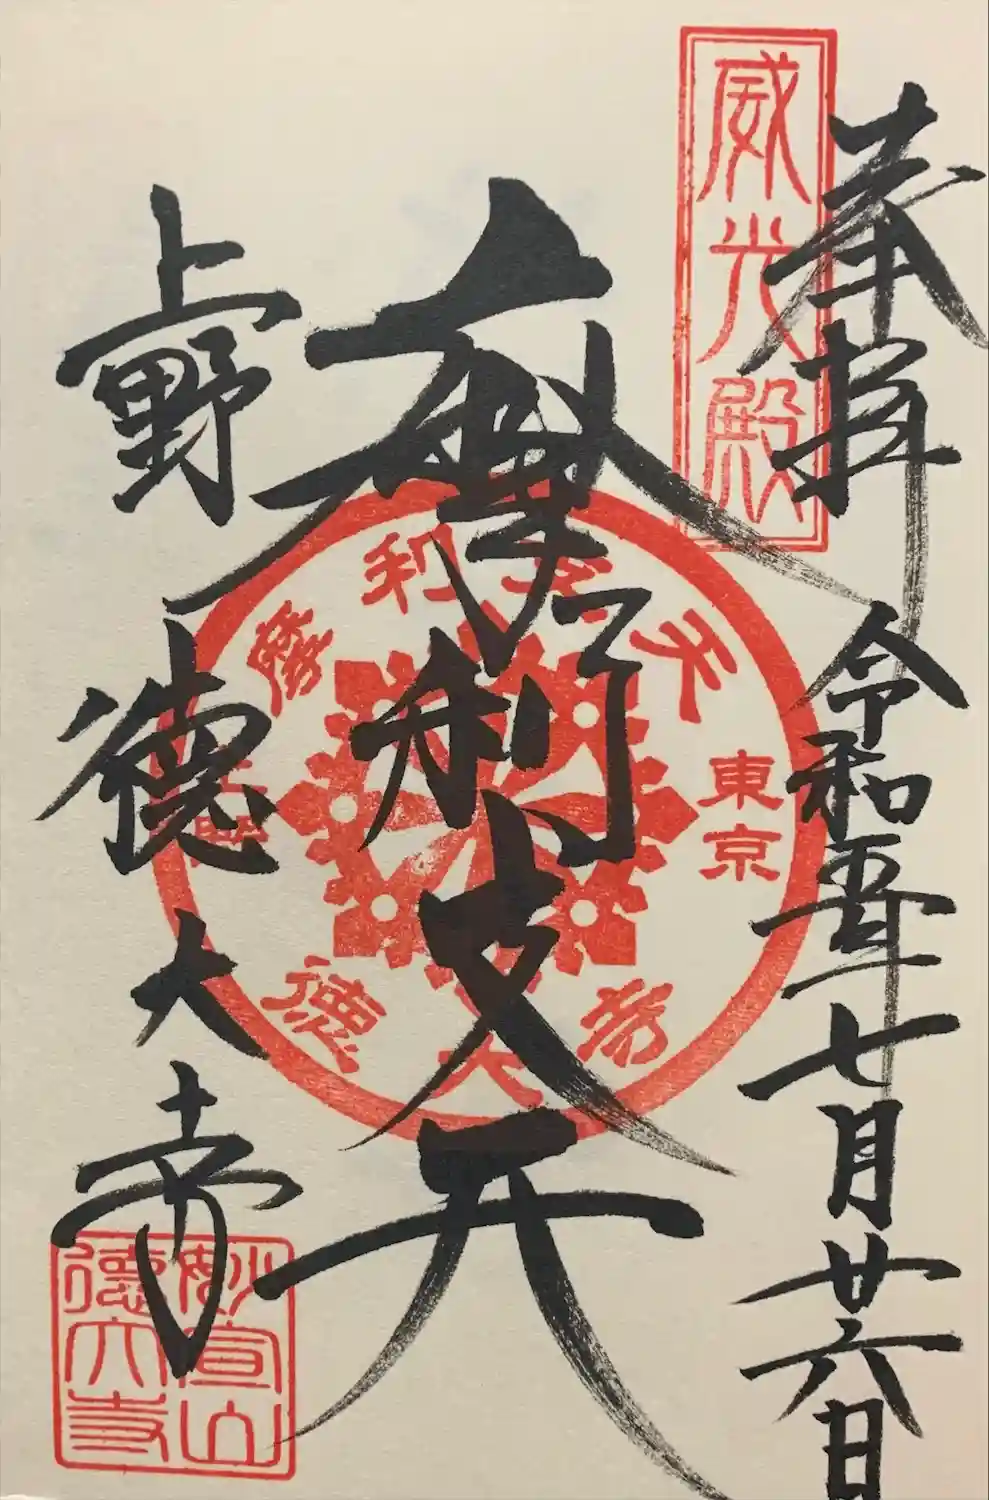 奉拝
令和五年七月廿六日
威光殿
摩利支天
上野
徳大寺
摩利支天
東京
上野
徳大寺
妙宣山
徳大寺